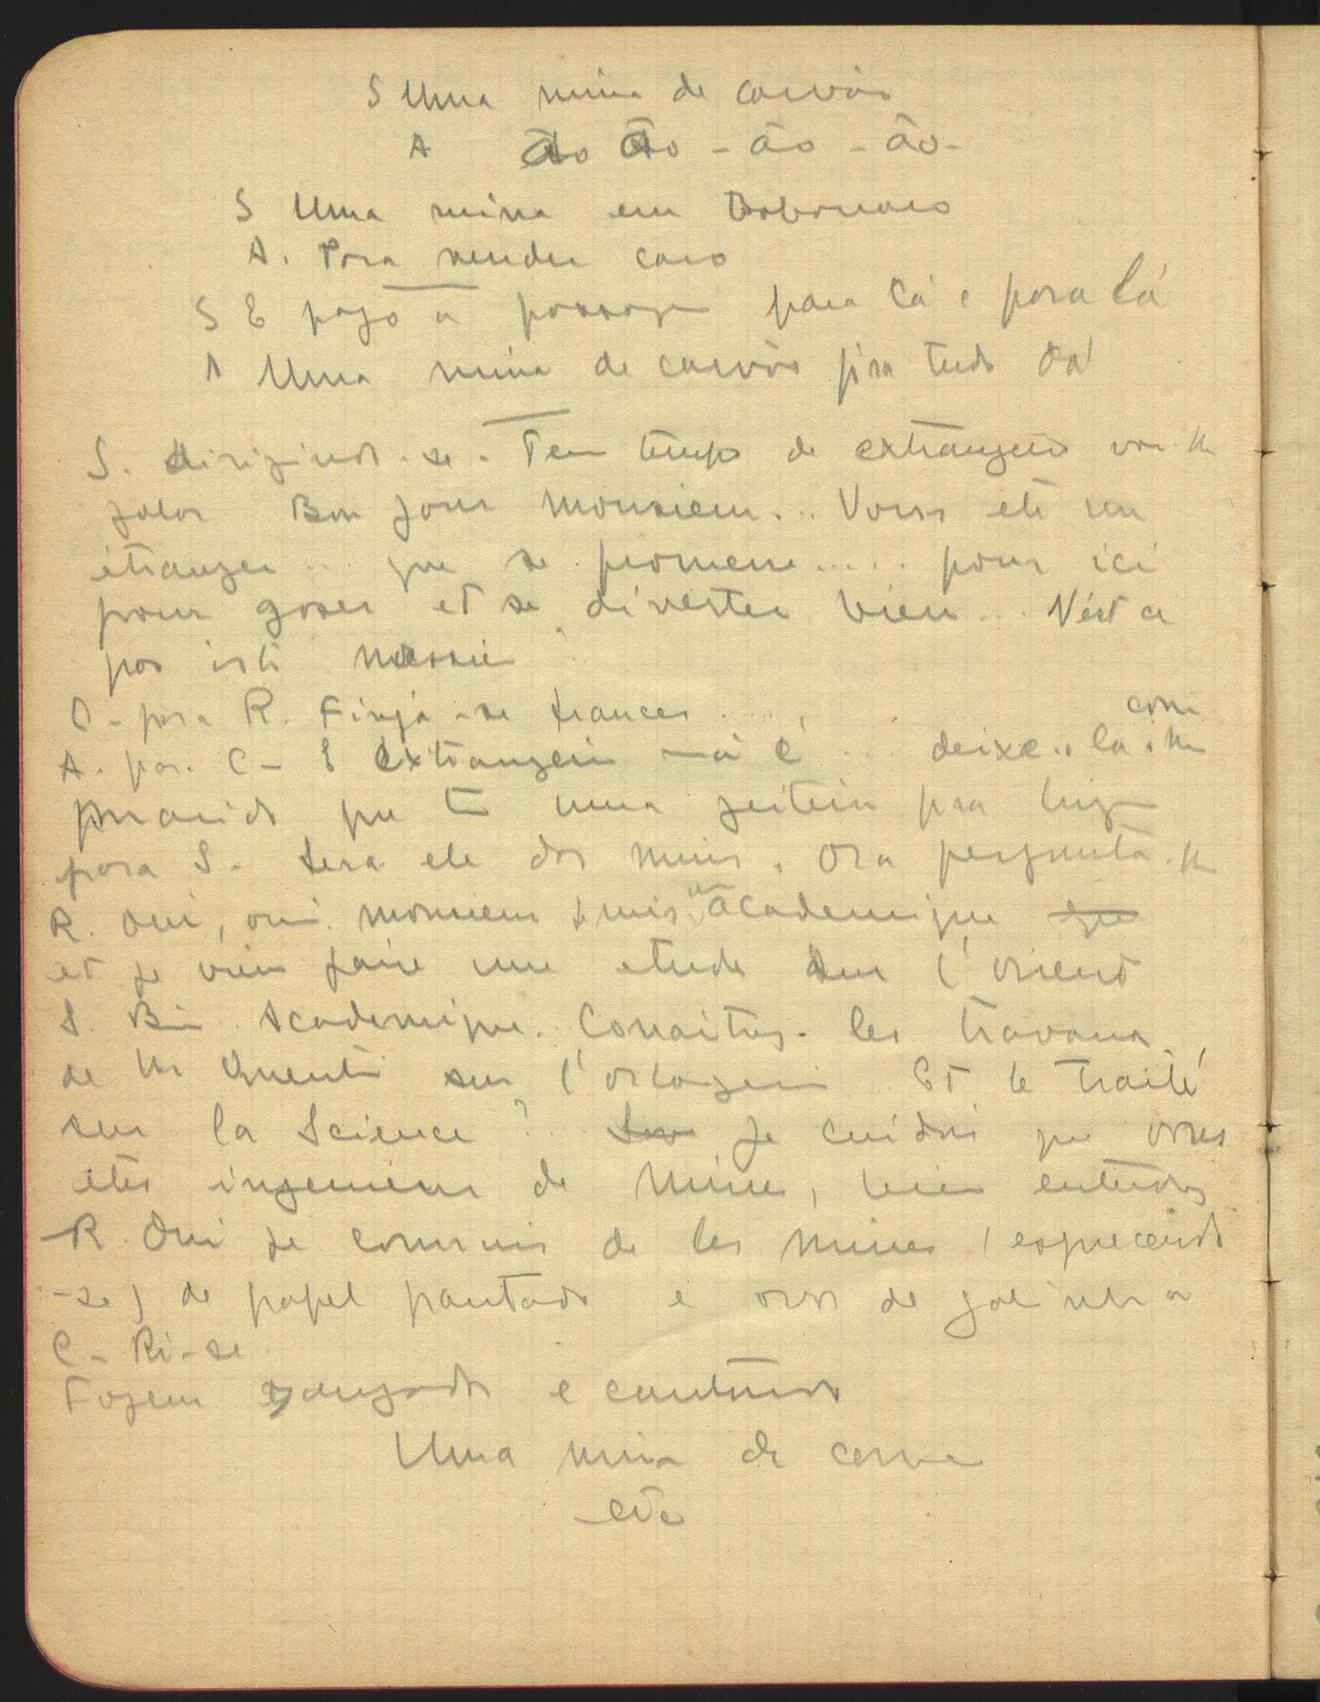 S Uma mina de carvão
A Ão Ão - ão - ão -
S Uma mina em Bobonaro
A. Para vender caro
S E pago a passagem para cá e para lá
A Uma mina de carvão pra tudo dá
S. dirigindo-se. Tem tempo de extrangeiro vou-lhe
falar Bon jour monsieur... Vous ete un
étranger ... que se promene ..... pour ici
pour goser et se diverter bien ... N'ést ce
pas isti messie ?
O - para R. Finja-se frances .....
A. para C - S Extrangeiro não é ... deixe-la lhe com
para S. Sera ele das minas. Ora pergunta-lhe
R. Oui, oui monsieur suis un academique
et je vien faire une etude sur l'orient
S. Bien Academique. Conaitez les travaux
de Mr sur l' Et le traité
sur la Science ? je cuidai que vous
étes ingenieur de Mines, bien entendu
R Oui je connais de les mines (esquecendo
-se) de papel pautado e ovos de galinha
C - Ri-se
Fogem zangados e cantando
Uma mina de carvão
etc